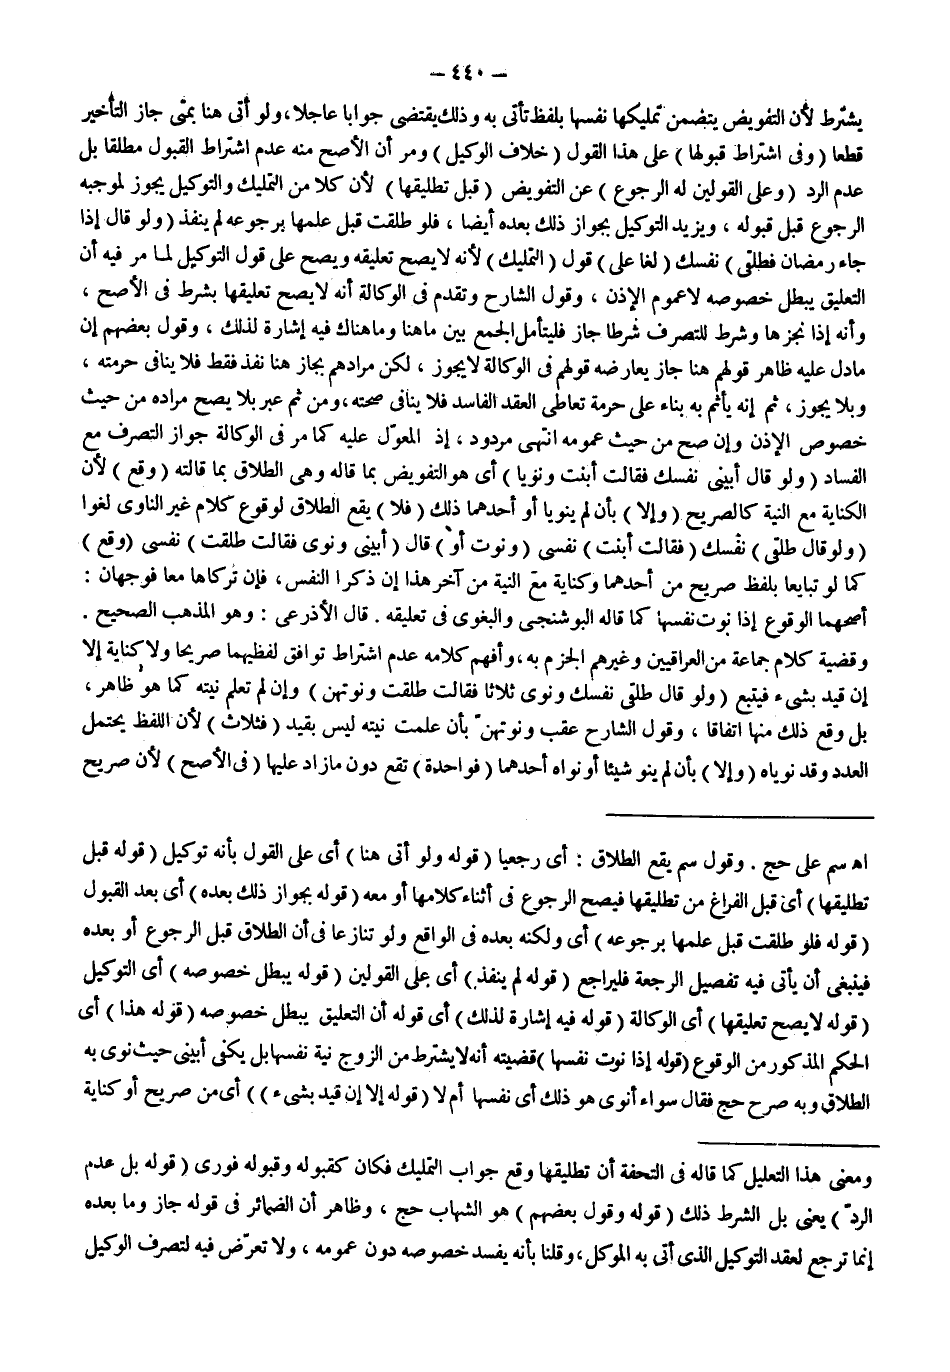 – ٤٤٠ –
يشترط لأن التفويض يتضمن تمليكها نفسها بلفظ تأتى به وذلك يقتضى جوابا عاجلا، ولو أتى هنا بمتى جاز التأخير
قطعا (وفى اشتراط قبولها) على هذا القول (خلاف الوكيل) ومر أن الأصح منه عدم اشتراط القبول مطلقا بل
عدم الرد (وعلى القولين له الرجوع) عن التفويض (قبل تطليقها) لأن كلا من التمليك والتوكيل يجوز لموجبه
الرجوع قبل قبوله ، ويزيد التوكيل بجواز ذلك بعده أيضا ، فلو طلقت قبل علمها برجوعه لم ينفذ (ولو قال إذا
جاء رمضان فطلقى) نفسك (لغا على) قول (التمليك) لأنه لا يصح تعليقه ويصح على قول التوكيل لما مر فيه أن
التعليق يبطل خصوصه لاعموم الإذن ، وقول الشارح وتقدم فى الوكالة أنه لا يصح تعليقها بشرط فى الأصح ،
وأنه إذا نجزها وشرط للتصرف شرطا جاز فليتأمل الجمع بين ماهنا وماهناك فيه إشارة لذلك ، وقول بعضهم إن
مادل عليه ظاهر قولهم هنا جاز يعارضه قولهم فى الوكالة لا يجوز ، لكن مرادهم بجاز هنا نفذ فقط فلا ينافى حرمته ،
وبلا يجوز ، ثم إنه يأثم به بناء على حرمة تعاطى العقد الفاسد فلا ينافى صحته، ومن ثم عبر بلا يصح مراده من حيث
خصوص الإذن وإن صح من حيث عمومه انتهى مردود ، إذ المعوّل عليه كما مر فى الوكالة جواز التصرف مع
الفساد (ولو قال أبينى نفسك فقالت أبنت ونويا) أى هو التفويض بما قاله وهى الطلاق بما قالته (وقع) لأن
الكناية مع النية كالصريح (وإلا) بأن لم ينويا أو أحدهما ذلك (فلا) يقع الطلاق لوقوع كلام غير الناوى لغوا
(ولو قال طلقى) نفسك (فقالت أبنت) نفسى (ونوت أو) قال (أبينى ونوى فقالت طلقت) نفسى (وقع)
كما لو تبايعا بلفظ صريح من أحدهما وكناية مع النية من آخر هذا إن ذكرا النفس، فإن تركاها معا فوجهان :
أصحهما الوقوع إذا نوت نفسها كما قاله البوشنجى والبغوى فى تعليقه . قال الأذرعى : وهو المذهب الصحيح .
وقضية كلام جماعة من العراقيين وغيرهم الجزم به، وأفهم كلامه عدم اشتراط توافق لفظيهما صريحا ولا كناية إلا
إن قيد بشىء فيتبع (ولو قال طلقى نفسك ونوى ثلاثا فقالت طلقت ونوتهن) وإن لم تعلم نيته كما هو ظاهر ،
بل وقع ذلك منها اتفاقا ، وقول الشارح عقب ونوتهنّ بأن علمت نيته ليس بقيد (فثلاث) لأن اللفظ يحتمل
العدد وقد نوياه (وإلا) بأن لم ينو شيئا أو نواه أحدهما (فواحدة) تقع دون مازاد عليها (فى الأصح) لأن صريح
اه سم على حج . وقول سم يقع الطلاق : أى رجعيا (قوله ولو أتى هنا) أى على القول بأنه توكيل (قوله قبل
تطليقها) أى قبل الفراغ من تطليقها فيصح الرجوع فى أثناء كلامها أو معه (قوله بجواز ذلك بعده) أى بعد القبول
(قوله فلو طلقت قبل علمها برجوعه) أى ولكنه بعده فى الواقع ولو تنازعا فى أن الطلاق قبل الرجوع أو بعده
فينبغى أن يأتى فيه تفصيل الرجعة فليراجع (قوله لم ينفذ) أى على القولين (قوله يبطل خصوصه) أى التوكيل
(قوله لا يصح تعليقها) أى الوكالة (قوله فيه إشارة لذلك) أى قوله أن التعليق يبطل خصوصه (قوله هذا) أى
الحكم المذكور من الوقوع (قوله إذا نوت نفسها) قضيته أنه لا يشترط من الزوج نية نفسها بل يكفى أبينى حيث نوى به
الطلاق وبه صرح حج فقال سواء أنوى هو ذلك أى نفسها أم لا (قوله إلا إن قيد بشىء)) أى من صريح أو كناية
ومعنى هذا التعليل كما قاله فى التحفة أن تطليقها وقع جواب التمليك فكان كقبوله وقبوله فورى (قوله بل عدم
الردّ) يعنى بل الشرط ذلك (قوله وقول بعضهم) هو الشهاب حج ، وظاهر أن الضمائر فى قوله جاز وما بعده
إنما ترجع لعقد التوكيل الذى أتى به الموكل، وقلنا بأنه يفسد خصوصه دون عمومه ، ولا تعرّض فيه لتصرف الوكيل